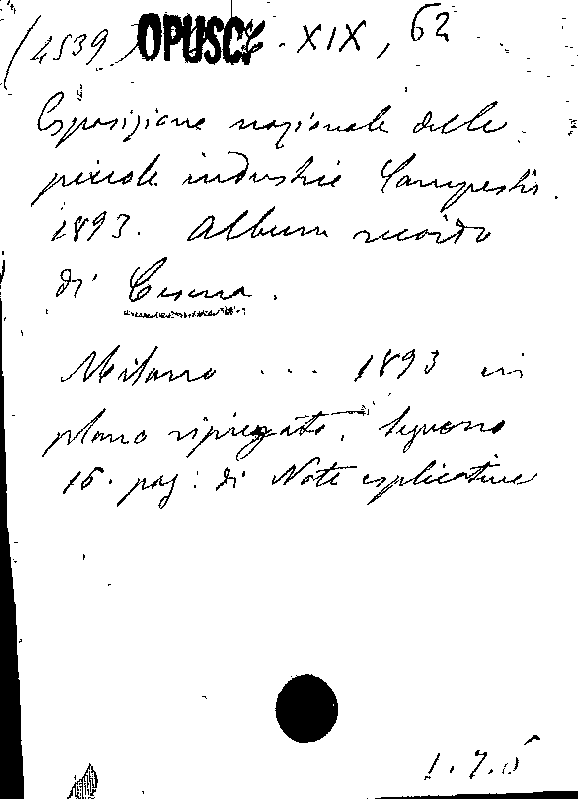 (4539) OPUSC. - XIX, 62
Esposizione nazionale delle
piccole industrie Campestri.
1893. Album ricordo
di Cesena.
Milano ... 1893 in
plano ripiegato. Seguono
16. pag: di Note esplicative
1.7.5